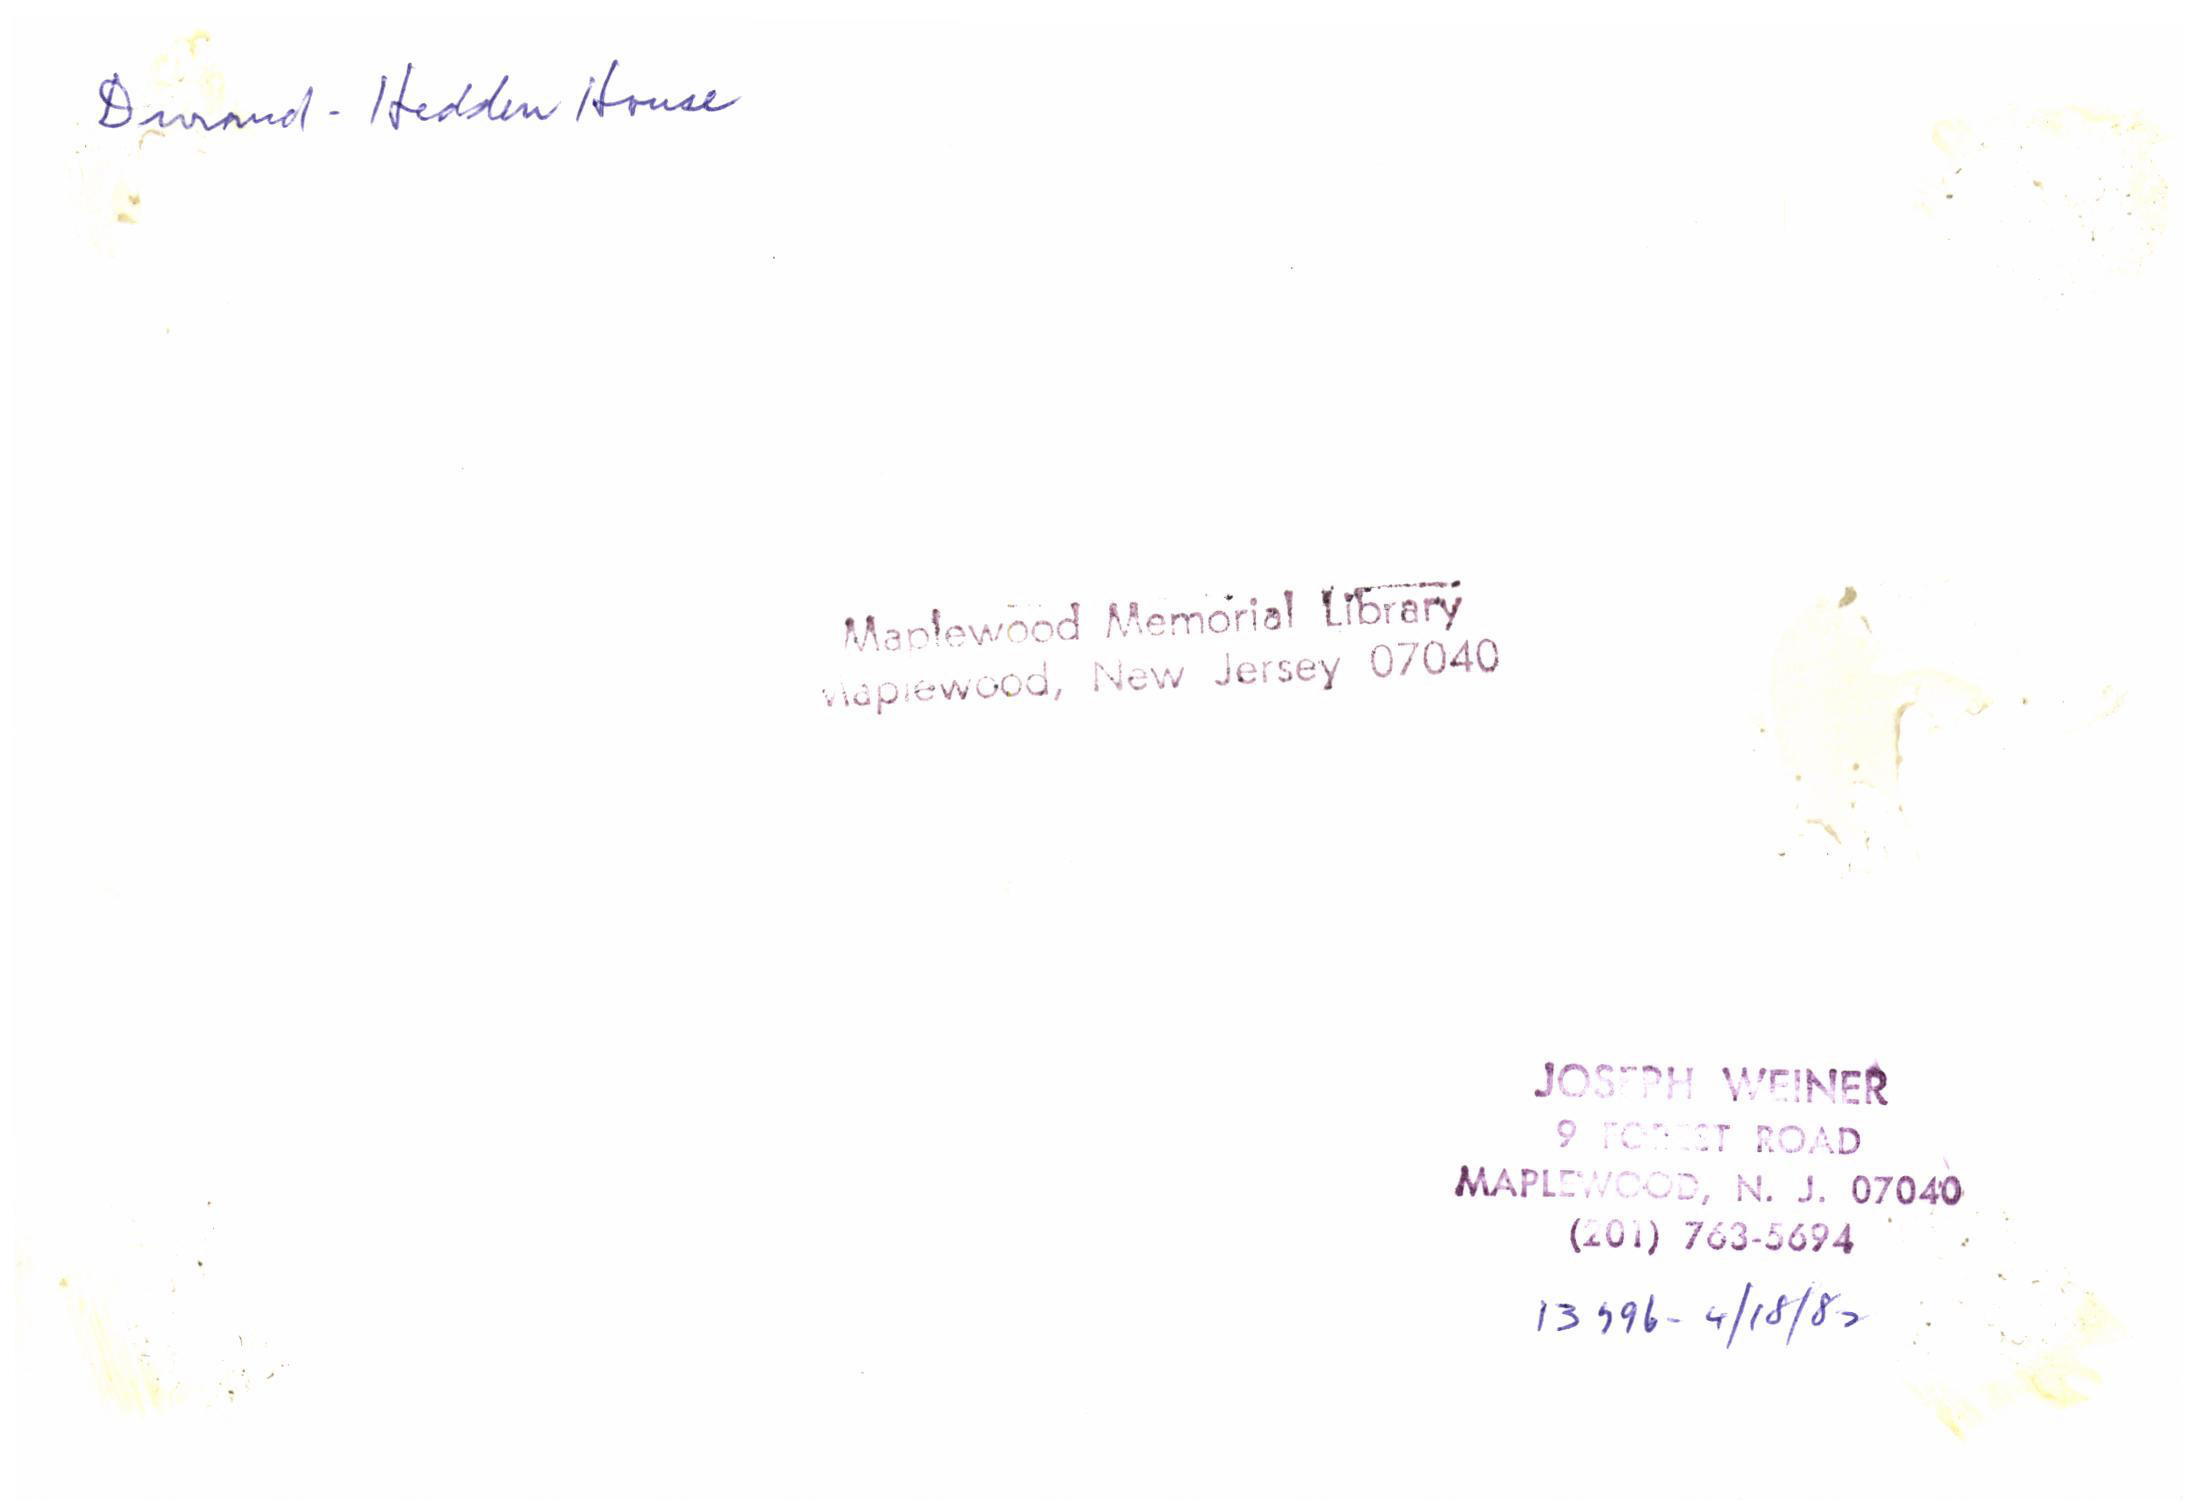 Durand - Hedden House
Maplewood Memorial Library
Maplewood, New Jersey 07040
JOSEPH WEINER
9 FOREST ROAD
MAPLEWOOD, N. J. 07040
(201) 763-5694
4/18/82